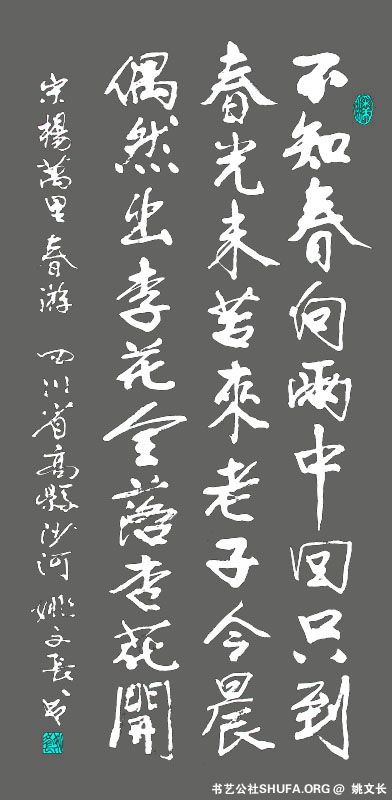 不知春向雨中回只到
春光未苦來老子今晨
偶然出李花全落杏花開
宋楊萬里春游 四川省高縣沙河 姚文長书
书艺公社SHUFA.ORG @ 姚文长